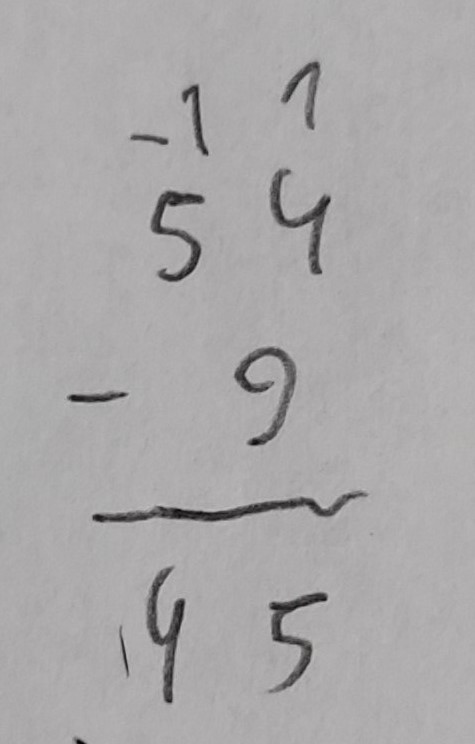 -1 1
5 4
- 9
4 5